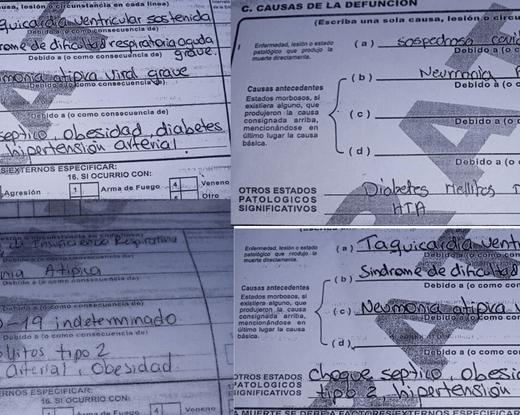 lesión o circunstancia en cada línea)
Taquicardia ventricular sostenida
drome de dificultad respiratoria aguda
grave.
Debido a (o como consecuencia de)
umonia atipica viral grave
Debido a (o como consecuencia de)
septico, obesidad, diabetes
, hipertensión arterial.
EXTERNOS ESPECIFICAR:
16. SI OCURRIO CON:
Agresión
1
Arma de Fuego
4
Veneno
5
Otro
C. CAUSAS DE LA DEFUNCION
(Escriba una sola causa, lesión o circun
Enfermedad, lesión o estado
patológico que produjo la
muerte directamente.
(a) sospechoso covid
Debido a (o
(b) Neumonía
Debido a (o
Causas antecedentes
Estados morbosos, si
existiera alguno, que
produjeron la causa
consignada arriba,
mencionándose en
último lugar la causa
básica.
(c)
Debido a (o
(d)
OTROS ESTADOS
PATOLOGICOS
SIGNIFICATIVOS
Diabetes Mellitus
HTA
de Insuficiencia Respiratoria
Debido a (o como consecuencia de)
nia Atipica
Debido a (o como consecuencia de)
-19 indeterminado
Debido a (o como consecuencia de)
litos tipo 2
Arterial, Obesidad.
EXTERNOS ESPECIFICAR:
16. SI OCURRIO CON:
Arma de Fuego
4
Veneno
Enfermedad, lesión o estado
patológico que produjo la
muerte directamente.
(a) Taquicardia vent
Debido a (o com
(b) Sindrome de dificultad
Debido a (o como
Causas antecedentes
Estados morbosos, si
existiera alguno, que
produjeron la causa
consignada arriba,
mencionándose en
último lugar la causa
básica.
(c) Neumonia atipica v
Debido a (o como
(d)
OTROS ESTADOS
PATOLOGICOS
SIGNIFICATIVOS
choque septico, obesid
tipo 2, hipertensión
LA MUERTE SE DEBE A FACTORES EXTERNOS ESPECIFICAR